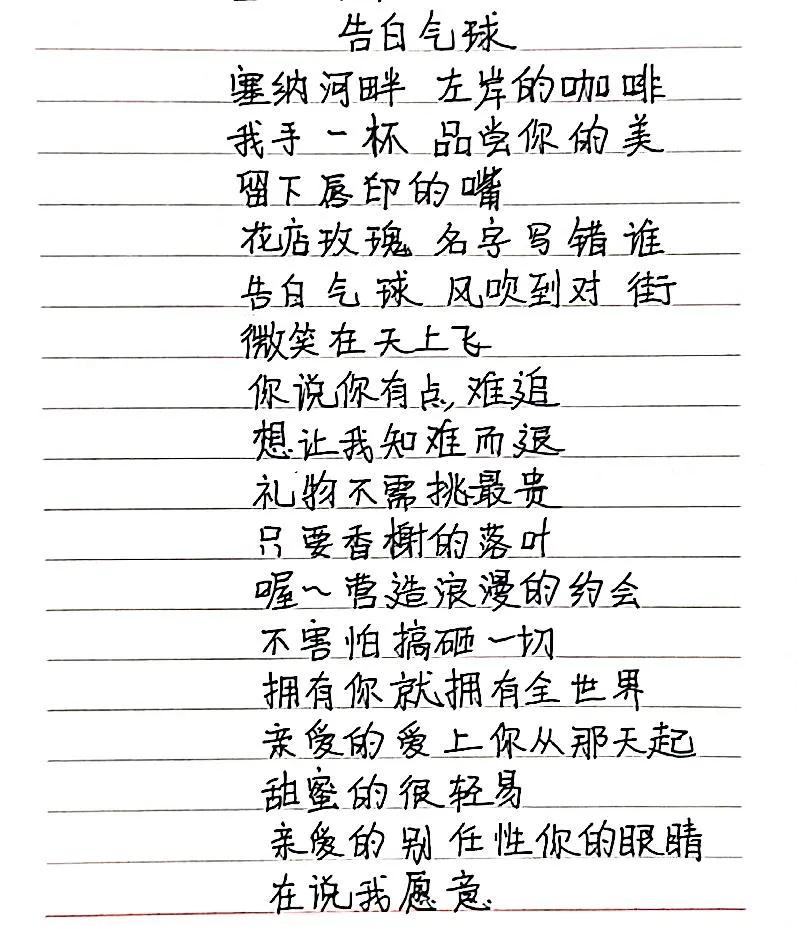 告白气球
塞纳河畔 左岸的咖啡
我手一杯 品尝你的美
留下唇印的嘴
花店玫瑰 名字写错谁
告白气球 风吹到对街
微笑在天上飞
你说你有点,难追
想让我知难而退
礼物不需挑最贵
只要香榭的落叶
喔~营造浪漫的约会
不害怕搞砸一切
拥有你就拥有全世界
亲爱的爱上你从那天起
甜蜜的很轻易
亲爱的别任性你的眼睛
在说我愿意.